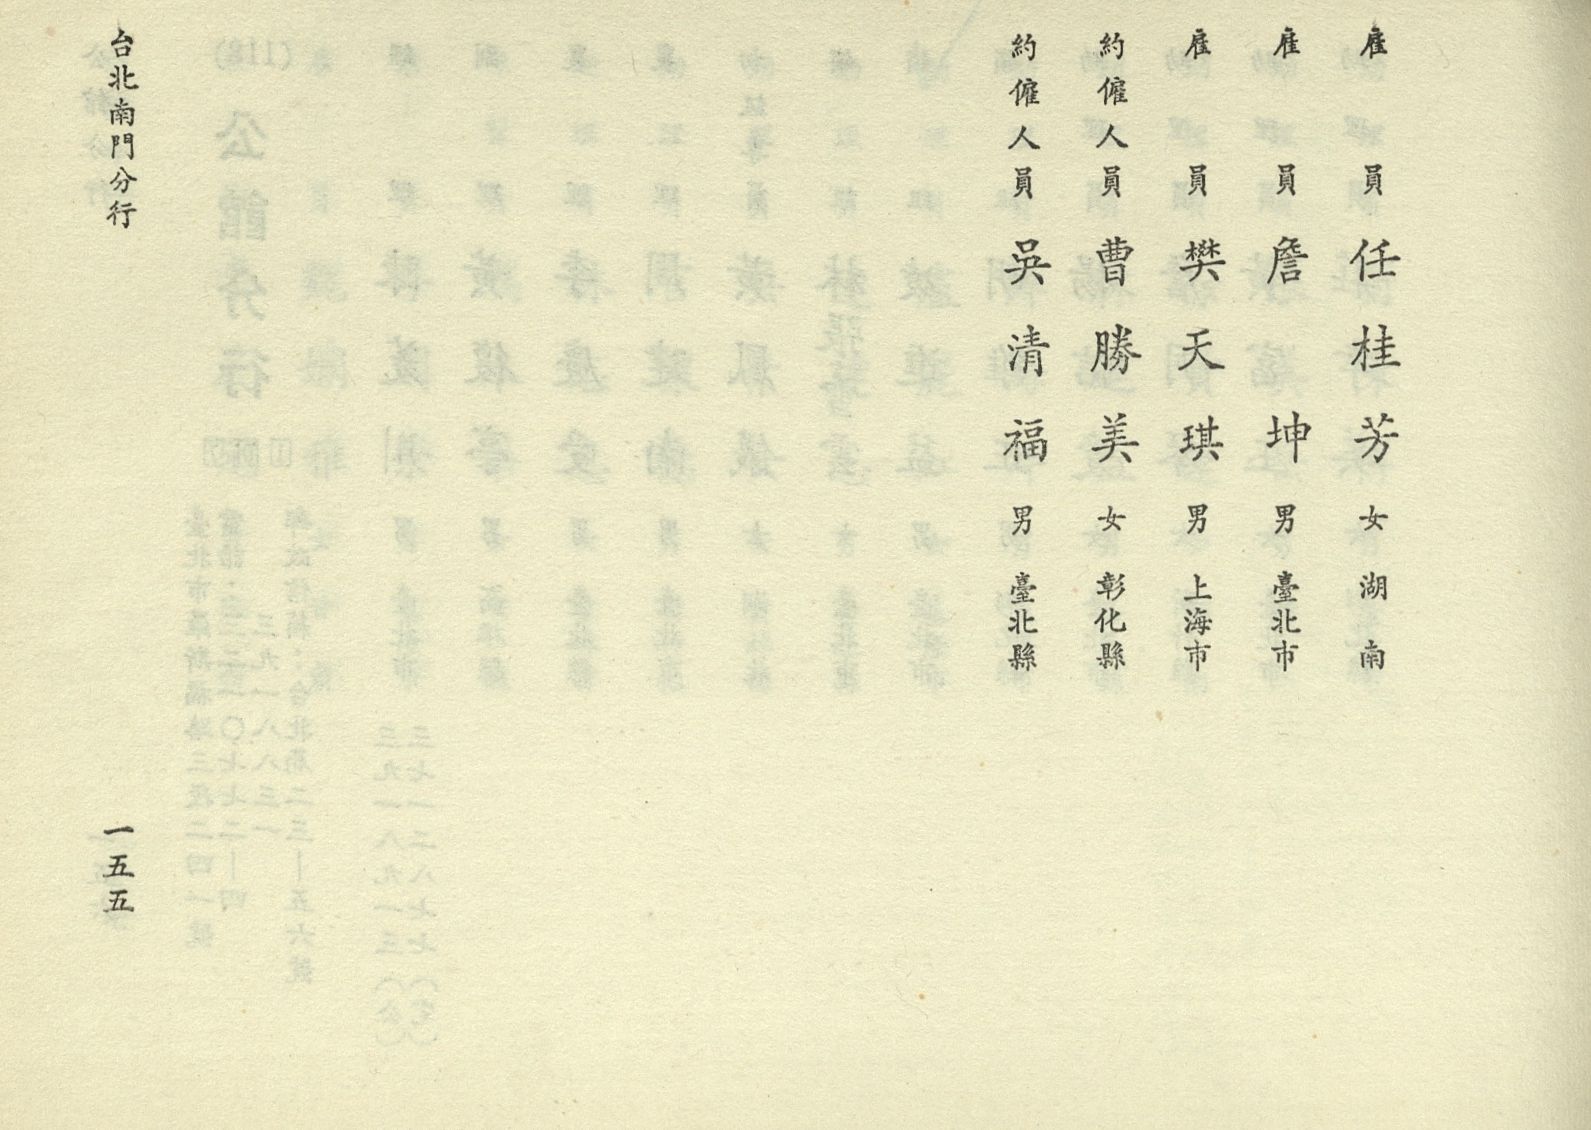 雇員 任桂芳 女 湖南
雇員 詹坤 男 臺北市
雇員 樊天琪 男 上海市
約僱人員 曹勝美 女 彰化縣
約僱人員 吳清福 男 臺北縣
台北南門分行
一五五